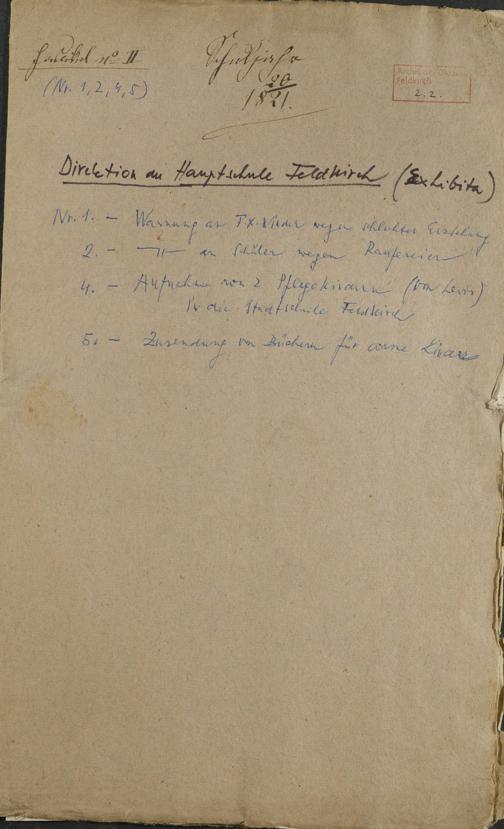 Faszikel No II
(Nr. 1, 2, 4, 5)
Schuljahr
1820/21.
Feldkirch
2.2.
Direktion an Hauptschule Feldkirch (Exhibita)
Nr. 1. – Warnung an F.X. wegen schlechter Erziehung
2. – –〃– an Schüler wegen Raufereien
4. – Aufnahme von 2 Pflegekindern (von Levis)
in die Stadtschule Feldkirch
5. – Zusendung von Büchern für arme Kinder